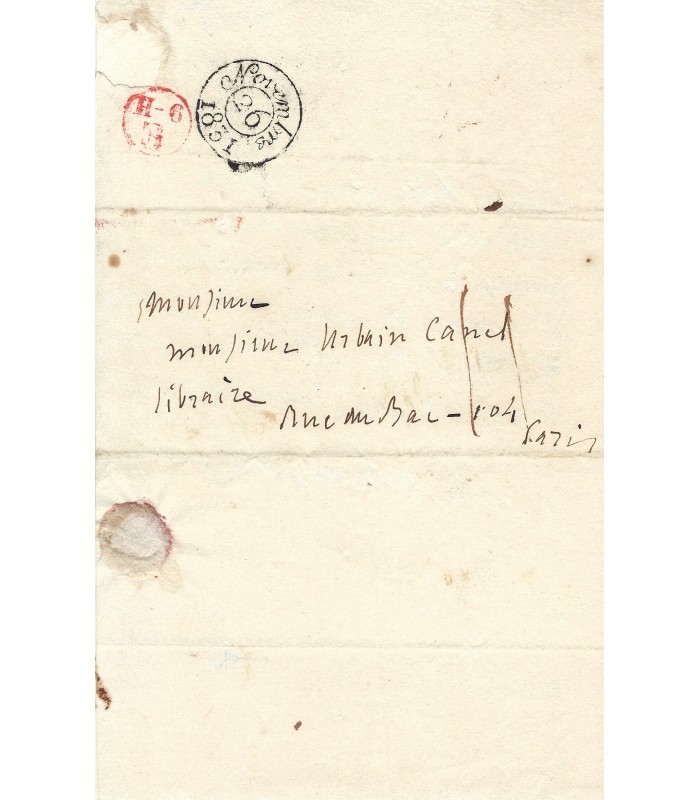 H-6
Novembre
26
1831
Monsieur
Monsieur Urbain Canel
libraire
Rue du Bac - 104
Paris